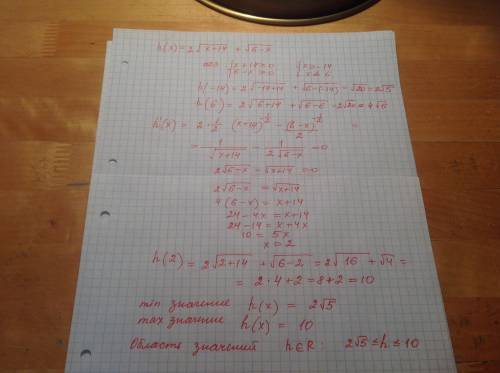 h(x) = 2√(x+14) + √(6-x)
{x+14≥0 {x≥-14
{6-x≥0 {x≤6
h(-14) = 2√(-14+14) + √(6-(-14)) = √20 = 2√5
h(6) = 2√(6+14) + √(6-6) = 2√20 = 4√5
h'(x) = 2·1/2 (x+14)^(-1/2) - (6-x)^(-1/2)/2 =
= 1/√(x+14) - 1/(2√(6-x)) = 0
2√(6-x) - √(x+14) = 0
2√(6-x) = √(x+14)
4(6-x) = x+14
24-4x = x+14
24-14 = x+4x
10 = 5x
x = 2
h(2) = 2√(2+14) + √(6-2) = 2√16 + √4 =
= 2·4+2 = 8+2 = 10
min значение h(x) = 2√5
max значение h(x) = 10
Область значений h∈R: 2√5 ≤ h ≤ 10